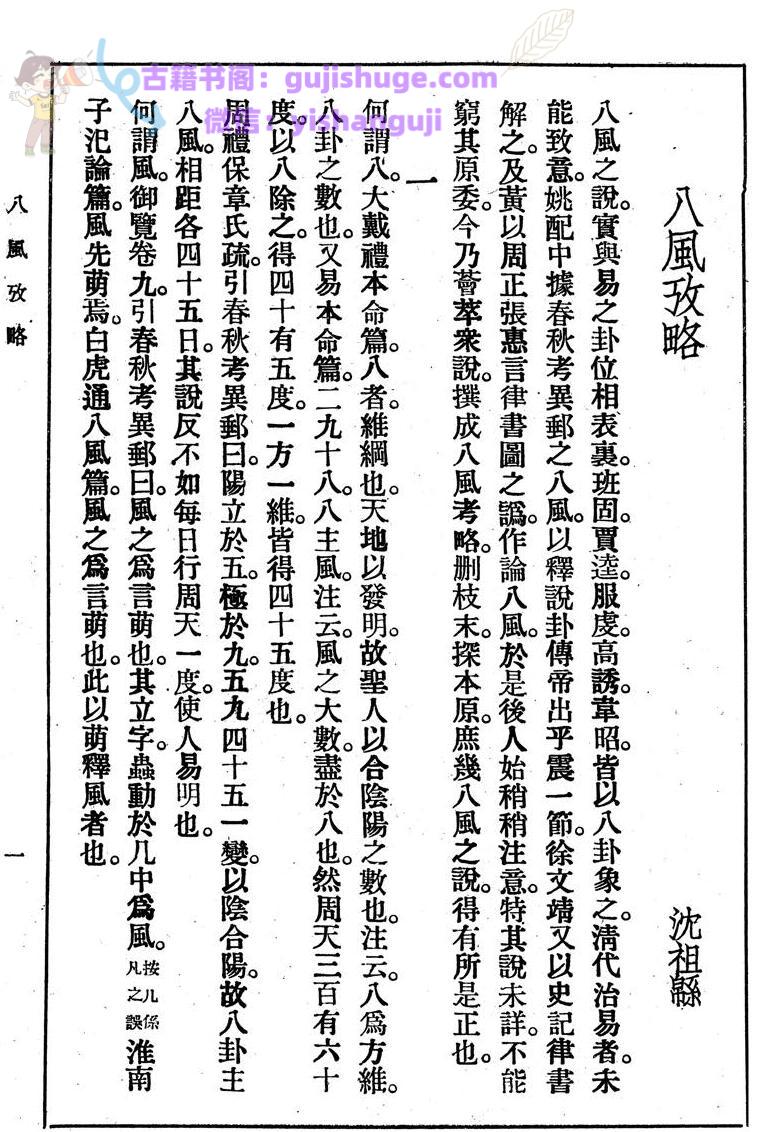 古籍书阁：gujishuge.com
微信：yishanguji
八風攷略
沈祖緜
八風之說。實與易之卦位相表裏。班固。賈逵。服虔。高誘。韋昭。皆以八卦象之。清代治易者。未
能致意。姚配中據春秋考異郵之八風。以釋說卦傳帝出乎震一節。徐文靖又以史記律書
解之。及黃以周正張惠言律書圖之譌。作論八風。於是後人始稍稍注意。特其說未詳。不能
窮其原委。今乃薈萃衆說。撰成八風考略。刪枝末。探本原。庶幾八風之說。得有所是正也。
一
何謂八。大戴禮本命篇。八者。維綱也。天地以發明。故聖人以合陰陽之數也。注云。八爲方維。
八卦之數也。又易本命篇。二九十八。八主風。注云。風之大數。盡於八也。然周天三百有六十
度。以八除之。得四十有五度。一方一維。皆得四十五度也。
周禮保章氏疏。引春秋考異郵曰。陽立於五。極於九。五九四十五一變。以陰合陽。故八卦主
八風。相距各四十五日。其說反不如每日行周天一度。使人易明也。
何謂風。御覽卷九。引春秋考異郵曰。風之爲言萌也。其立字。蟲動於几中爲風。按几係凡之誤淮南
子氾論篇。風先萌焉。白虎通八風篇。風之爲言萌也。此以萌釋風者也。
八風攷略
一